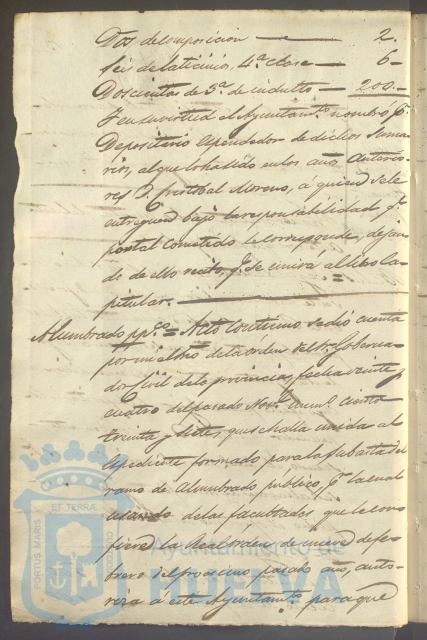 Dos de composicion — 2.
seis de laticinios, 4ª clase — 6 —
Doscientas de 3ª de indulto — 200. —
Y en su virtud el Ayuntamtº nombró pr
Depositario espendedor de dichos Suma-
rios, al que lo ha sido en los años anterio-
res D. Cristobal Moreno, á quien se le
entreguen bajo la responsabilidad qe
por tal cometido le corresponde, dejan-
do de ello recibo, qe se unirá al libro Ca-
pitular. —
Alumbrado ppco = Acto continuo se dió cuenta
por mi el Srio de la órden del Sr Goberna-
dor Civil de la provincia, fecha veinte y
cuatro del pasado Novre numº ciento
treinta y siete, que se halla unida al
espediente formado para la subasta del
ramo de Alumbrado público, pr la cual
usando de las facultades que le con-
fiere la Real orden de nueve de fe-
brero del procsimo pasado año, auto-
riza á este Ayuntamtº para que
PORTUS MARIS
ET TERRÆ
CUSTODIO
Ayuntamiento de
HUELVA